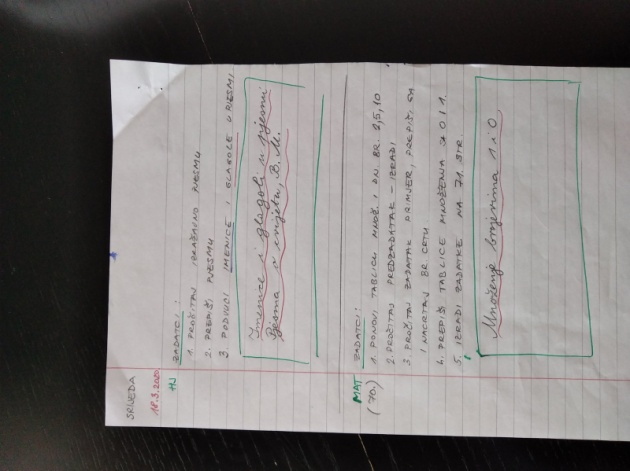 SRIJEDA
18.3.2020.
HJ
ZADATCI:
1. PROČITAJ IZRAŽAJNO PJESMU
2. PREPIŠI PJESMU
3. PODVUCI IMENICE I GLAGOLE U PJESMI
Imenice i glagoli u pjesmi
Pjesma o cvijetu, B. M.
MAT ZADATCI:
(70.)
1. PONOVI TABLICU MNOŽ. I DIJ. BR. 2,5,10
2. PROČITAJ PREDZADATAK - IZRADI
3. PROČITAJ ZADATAK PRIMJER, PREPIŠI GA
I NACRTAJ BR. CRTU
4. PREPIŠI TABLICE MNOŽENJA S 0 I 1.
5. IZRADI ZADATKE NA 71. STR.
Množenje brojevima 1 i 0